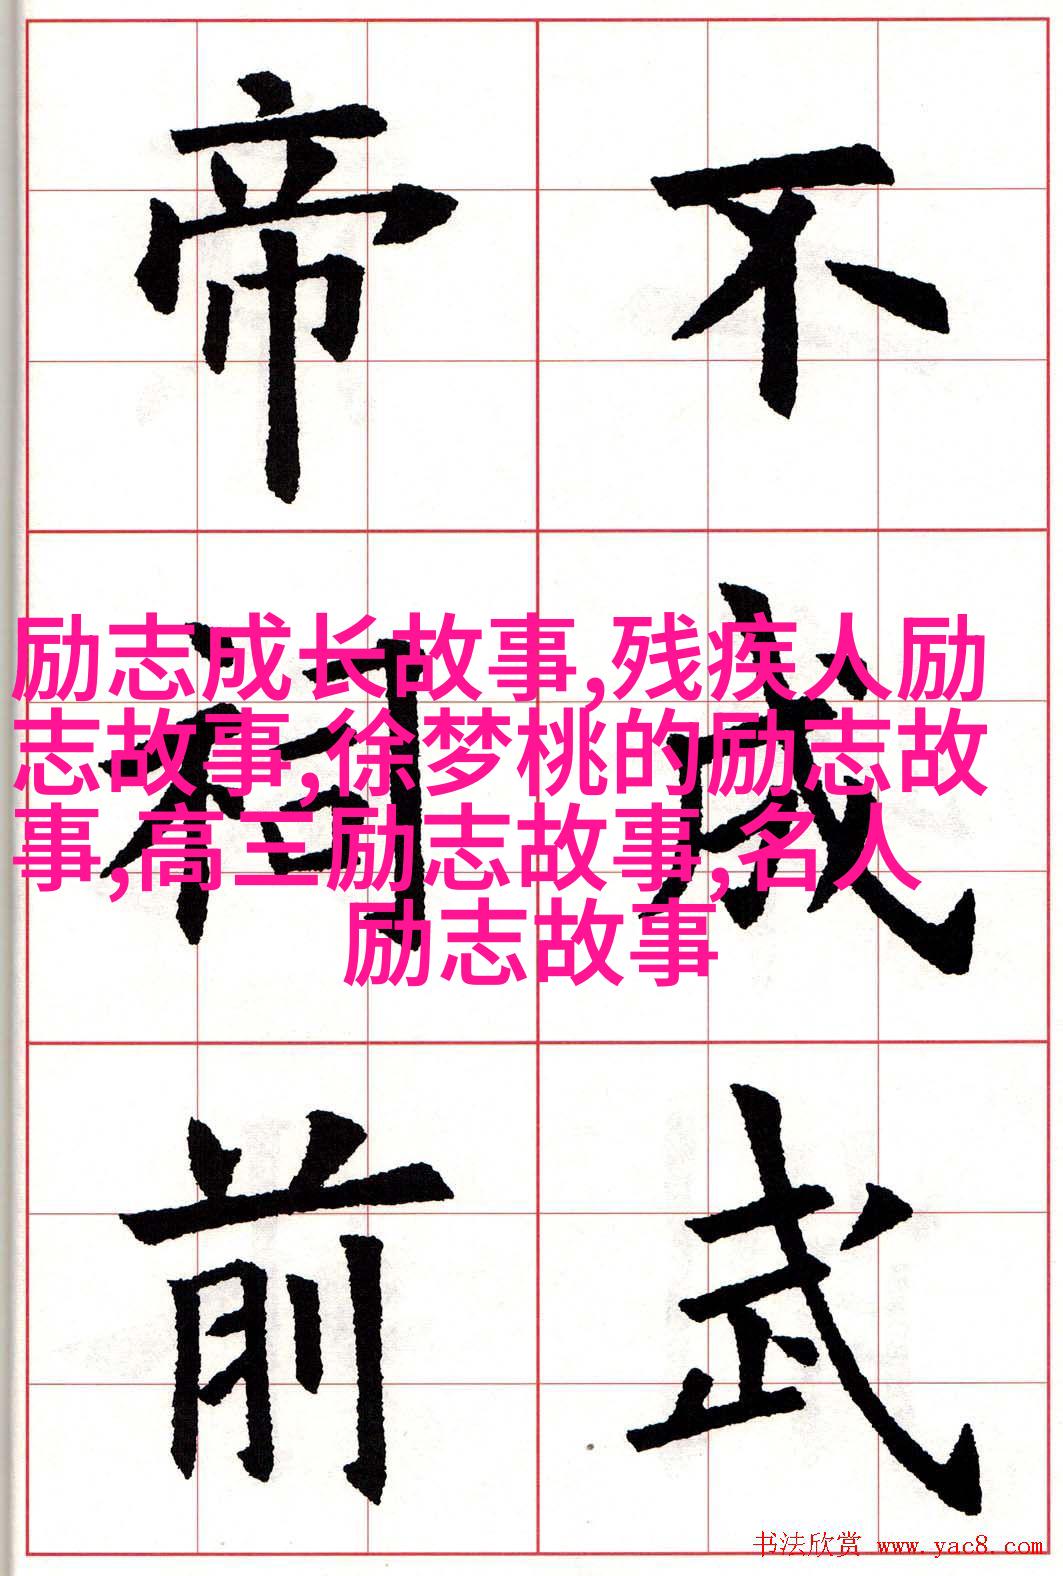 不
武
帝
祠
前
励志成长故事,残疾人励
志故事,徐梦桃的励志故
事,高三励志故事,名人
励志故事
书法欣赏 www.yac8.com